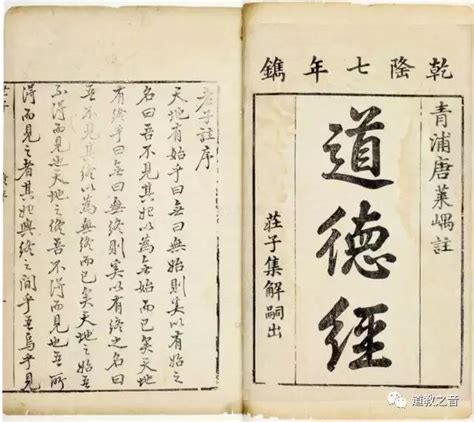 乾隆七年鐫
青浦唐萊嵎註
道德經
莊子集解嗣出
老子註序
天地有始乎曰無曰無始則奚以有始之
名曰吾不見其始以為無始而已矣天地
有終乎曰無曰無終則奚以有終之名曰
吾不見其終以為無終而已矣天地之始吾
不得而見也天地之終吾不得而見也吾所
得而見之者其始與終之間乎吾烏乎見
老子
道教之音